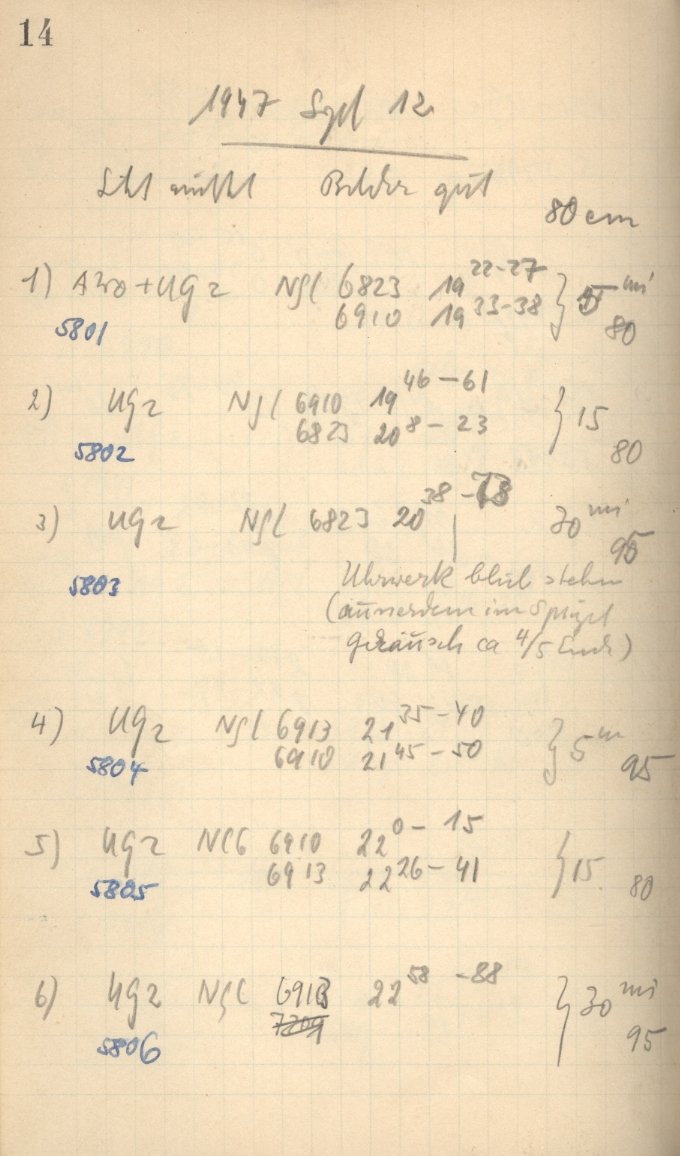 14
1947 Sept 12
Bilder gut
80 cm
1) + UG2 NGC 6823 19 22-27 } 5 mi
6910 19 33-38 80
5801
2) UG2 NGC 6910 19 46-61 } 15
6823 20 8-23
5802 80
3) UG2 NGC 6823 20 38- 30 mi
95
5803 Uhrwerk blieb stehen
(ausserdem im Spiegel
geräusch ca 4/5 Ende)
4) UG2 NGC 6913 21 35-40 } 5 m
6910 21 45-50 95
5804
5) UG2 NGC 6910 22 0-15 } 15
6913 22 26-41
5805 80
6) UG2 NGC 6913 22 58-88 } 30 mi
95
5806